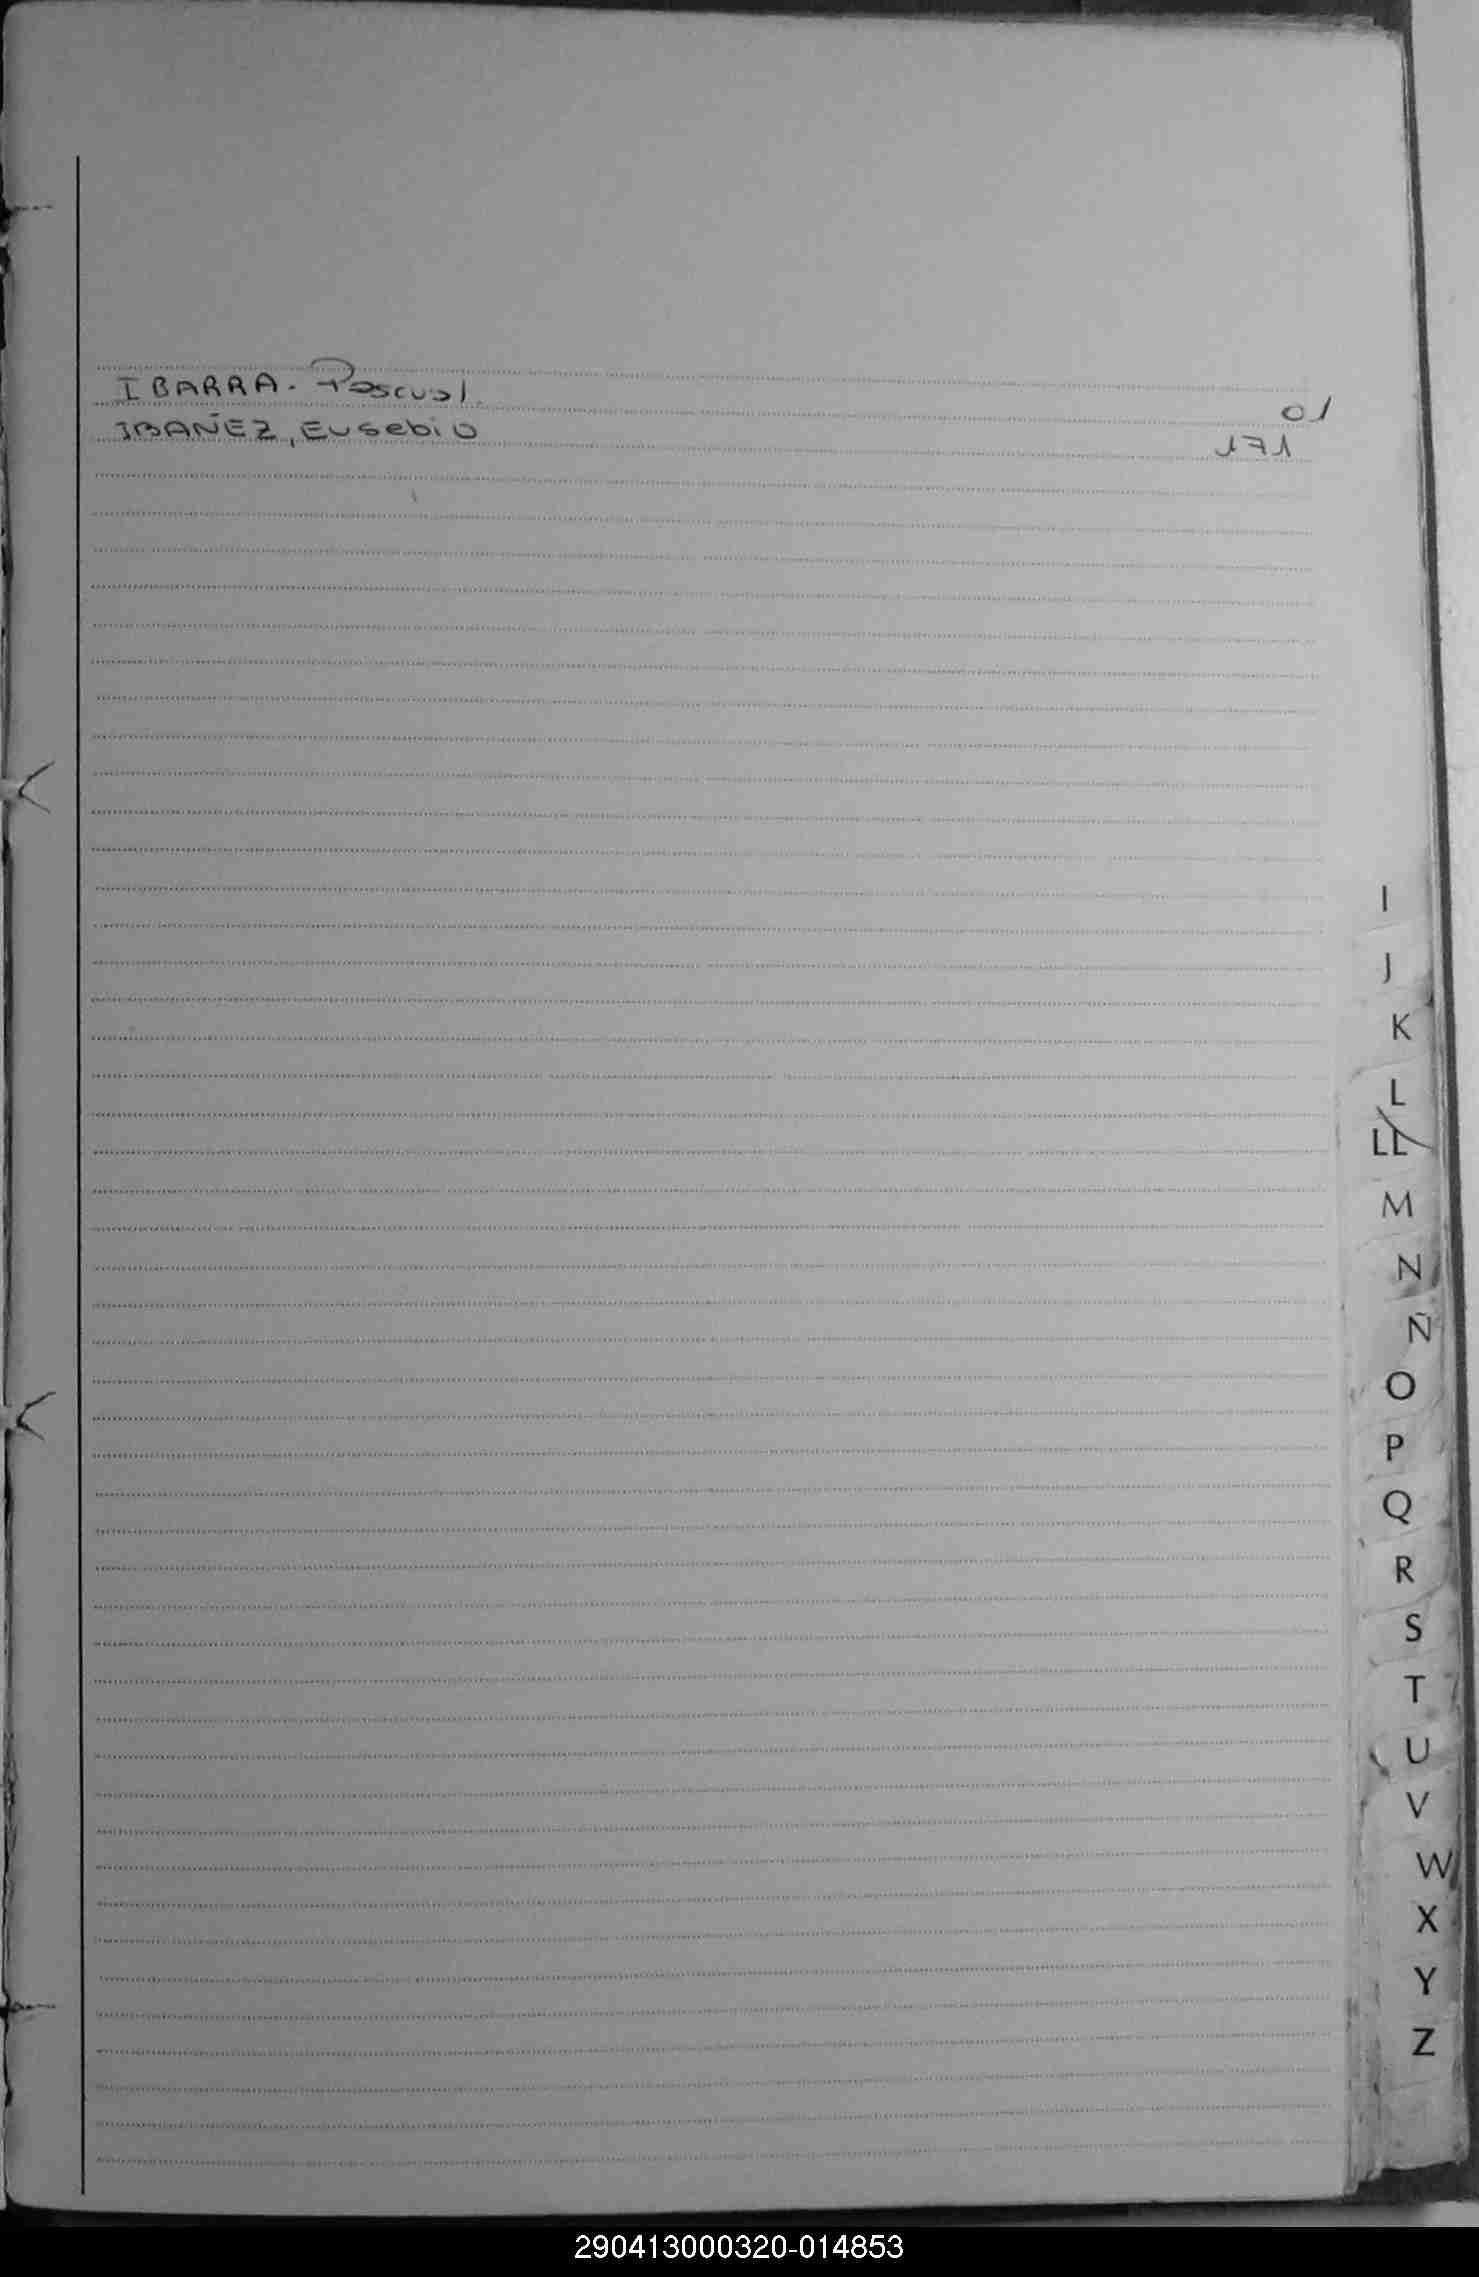 IBARRA. Pascual.
01
IBAÑEZ, Eusebio
171
I
J
K
L
LL
M
N
Ñ
O
P
Q
R
S
T
U
V
W
X
Y
Z
290413000320-014853